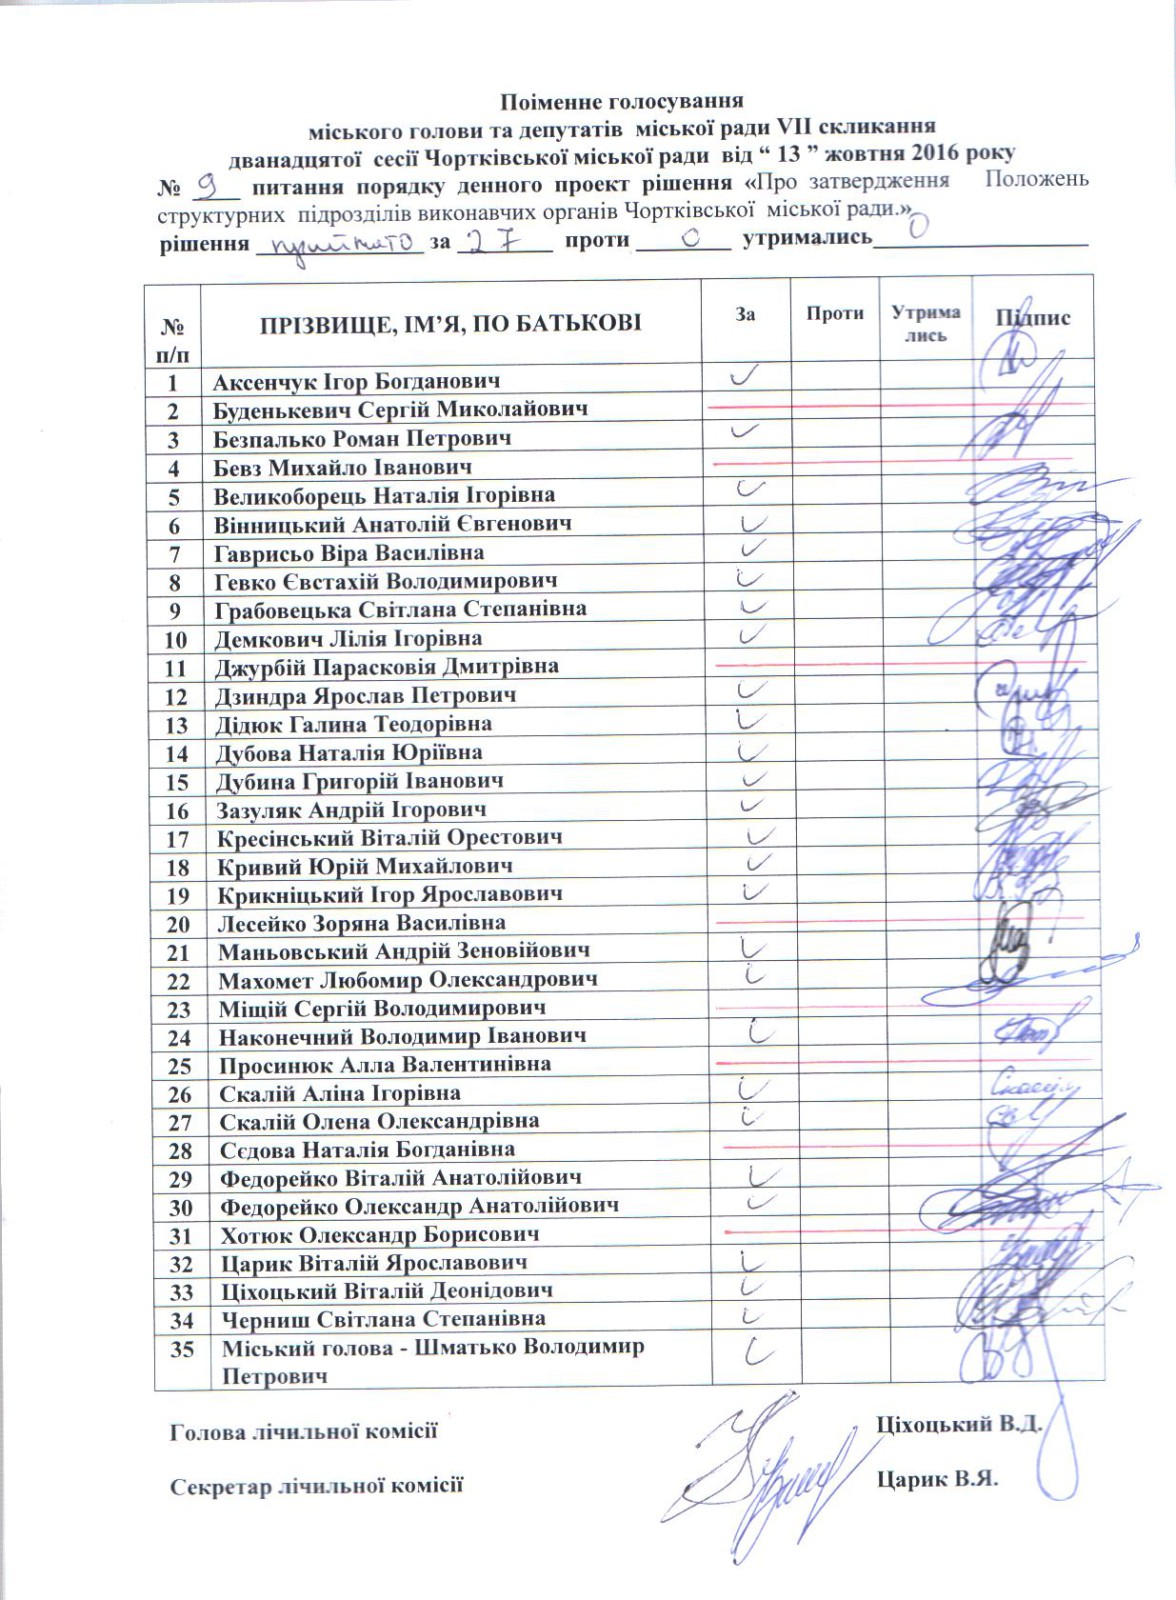 Поіменне голосування
міського голови та депутатів міської ради VII скликання
дванадцятої сесії Чортківської міської ради від “ 13 ” жовтня 2016 року
№ 9 питання порядку денного проект рішення «Про затвердження Положень
структурних підрозділів виконавчих органів Чортківської міської ради.»
рішення прийнято за 27 проти 0 утримались 0
№ п/п ПРІЗВИЩЕ, ІМ’Я, ПО БАТЬКОВІ За Проти Утрима лись Підпис
1 Аксенчук Ігор Богданович
2 Буденькевич Сергій Миколайович
3 Безпалько Роман Петрович
4 Бевз Михайло Іванович
5 Великоборець Наталія Ігорівна
6 Вінницький Анатолій Євгенович
7 Гаврисьо Віра Василівна
8 Гевко Євстахій Володимирович
9 Грабовецька Світлана Степанівна
10 Демкович Лілія Ігорівна
11 Джурбій Парасковія Дмитрівна
12 Дзиндра Ярослав Петрович
13 Дідюк Галина Теодорівна
14 Дубова Наталія Юріївна
15 Дубина Григорій Іванович
16 Зазуляк Андрій Ігорович
17 Кресінський Віталій Орестович
18 Кривий Юрій Михайлович
19 Крикніцький Ігор Ярославович
20 Лесейко Зоряна Василівна
21 Маньовський Андрій Зеновійович
22 Махомет Любомир Олександрович
23 Міщій Сергій Володимирович
24 Наконечний Володимир Іванович
25 Просинюк Алла Валентинівна
26 Скалій Аліна Ігорівна
27 Скалій Олена Олександрівна
28 Сєдова Наталія Богданівна
29 Федорейко Віталій Анатолійович
30 Федорейко Олександр Анатолійович
31 Хотюк Олександр Борисович
32 Царик Віталій Ярославович
33 Ціхоцький Віталій Деонідович
34 Черниш Світлана Степанівна
35 Міський голова - Шматько Володимир
Петрович
Голова лічильної комісії Ціхоцький В.Д.
Секретар лічильної комісії Царик В.Я.